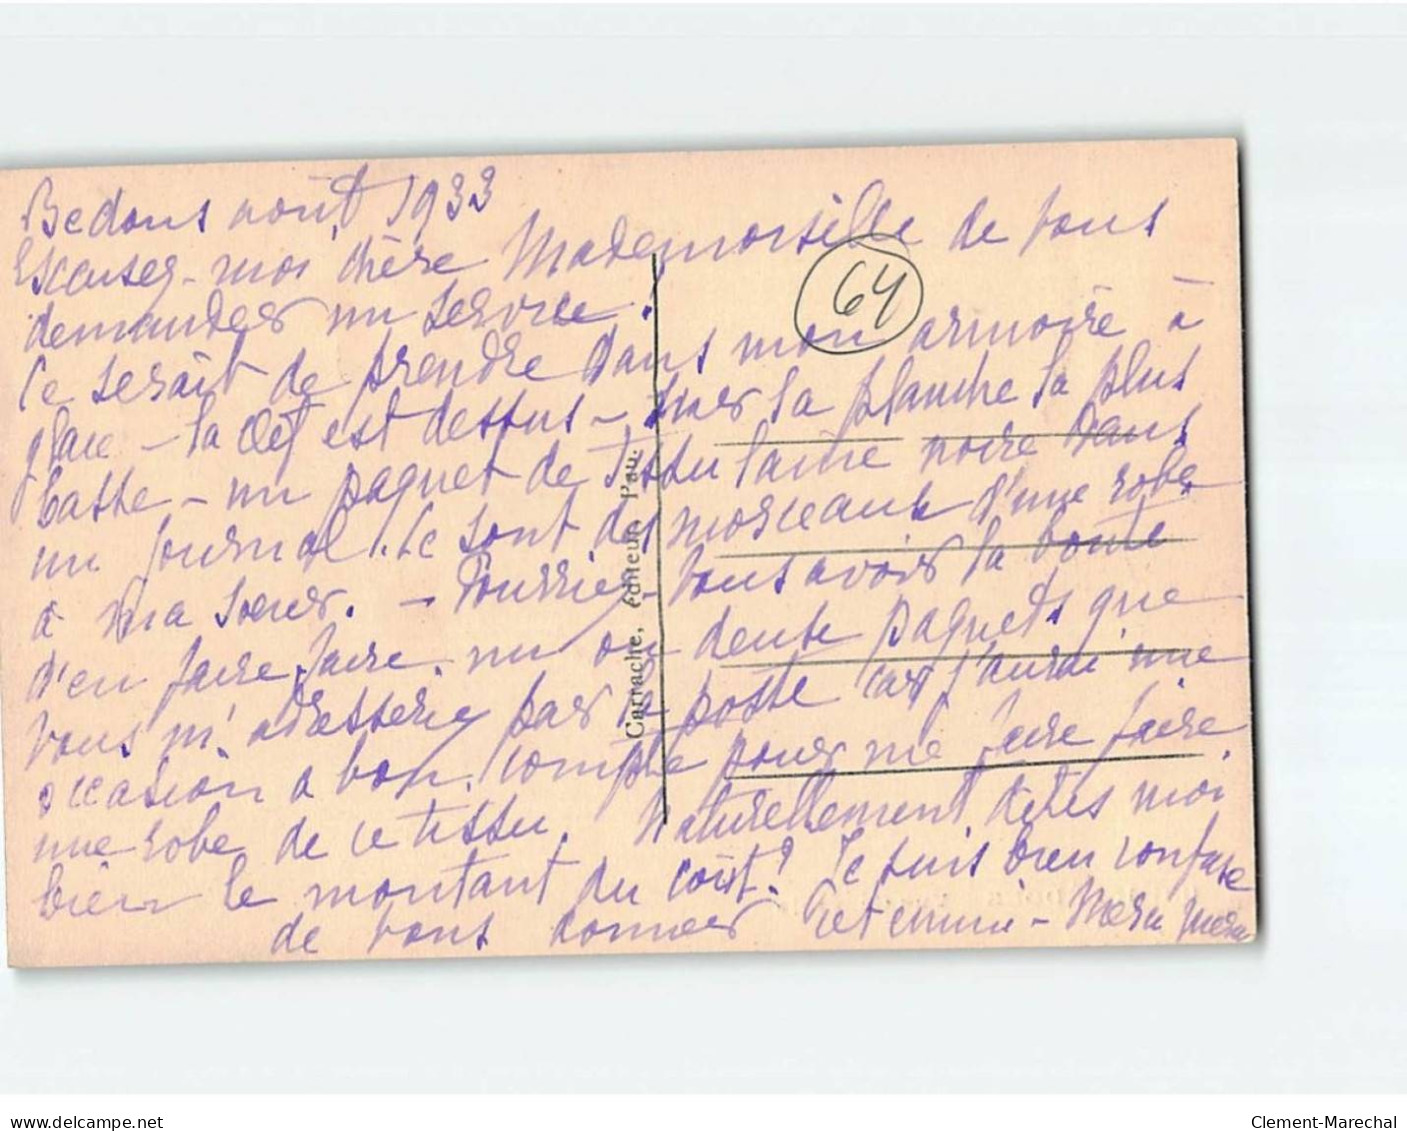 Bedous août 1933
Excusez-moi chère Mademoiselle de vous
demander un service.
Ce serait de prendre dans mon armoire à
glace - la clef est dessus - sur la planche la plus
basse - un paquet de tissu laine noire dans
un journal. Ce sont des morceaux d'une robe
à ma soeur. - Pourriez-vous avoir la bonté
d'en faire faire un ou deux paquets que
vous m'adresseriez par la poste car j'aurai une
occasion a bon compte pour me faire faire
une robe de ce tissu. Naturellement dites moi
bien le montant du coût? Je suis bien confuse
de vous donner cet ennui - Merci merci
64
Carrache, éditeur, Pau.
delcampe.net
Clement-Marechal